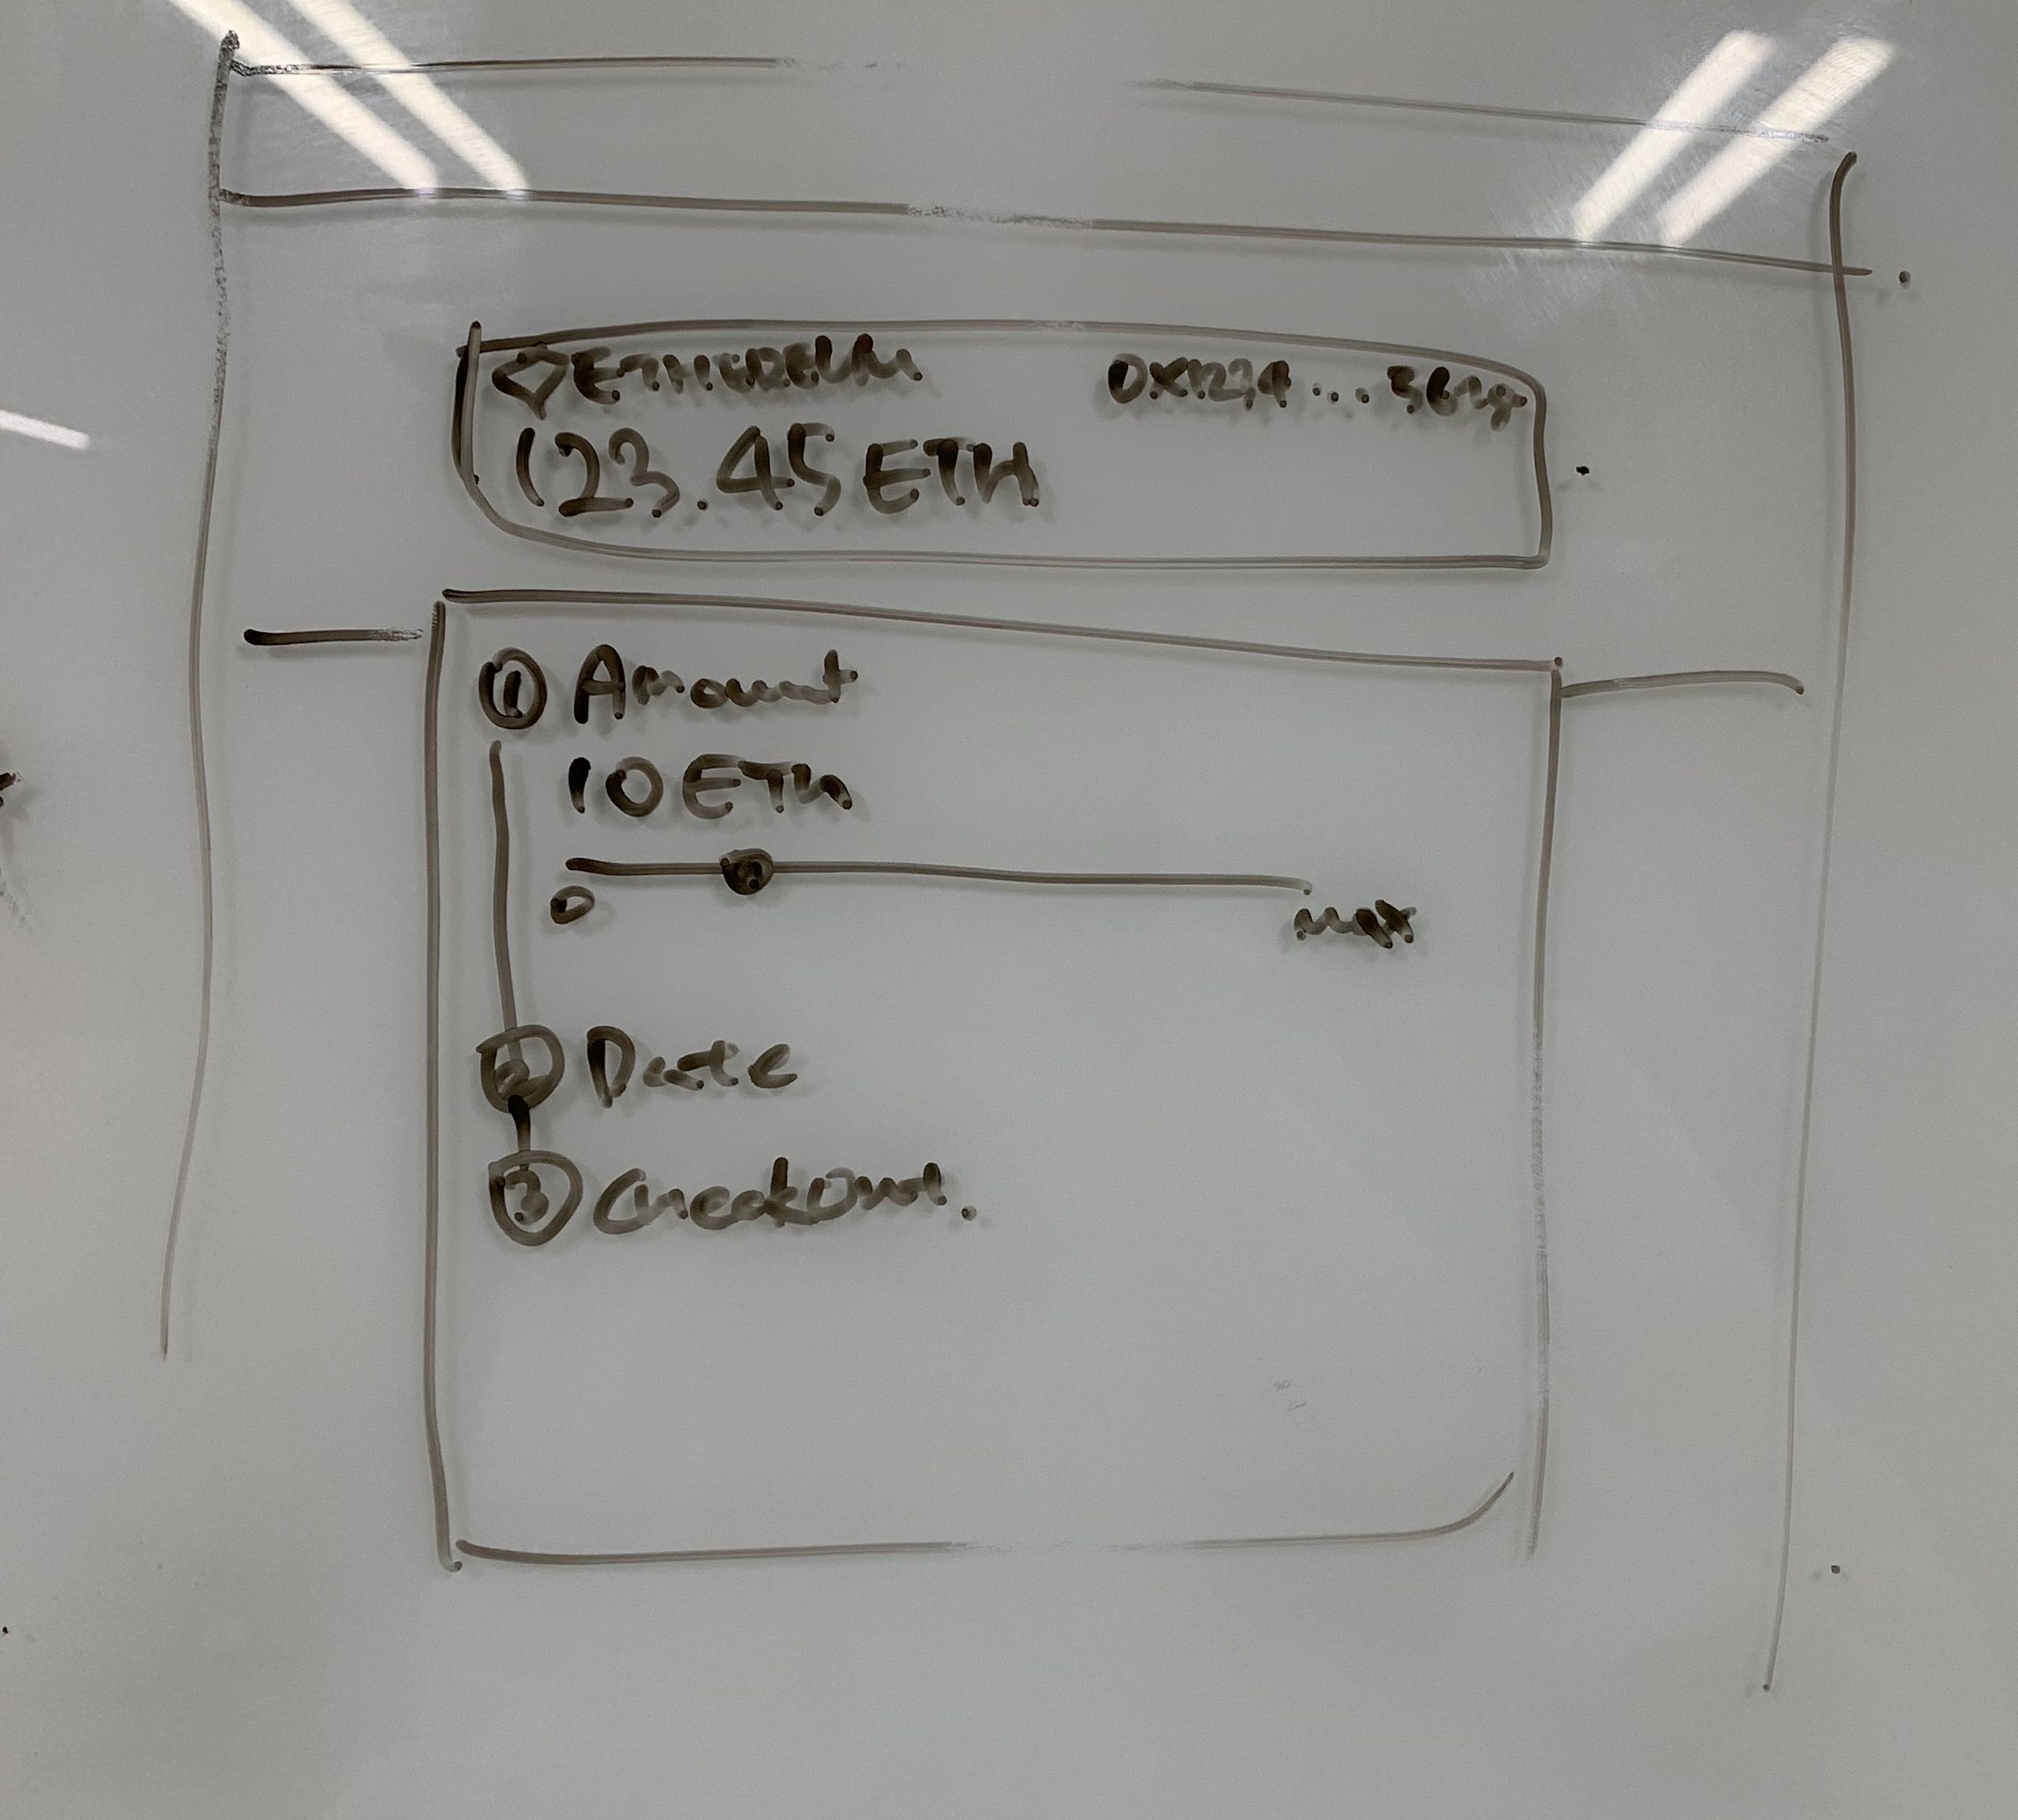 ETHEREUM
0x1234...
123.45 ETH
1 Amount
10 ETH
0
max
2 Date
3 Checkout.